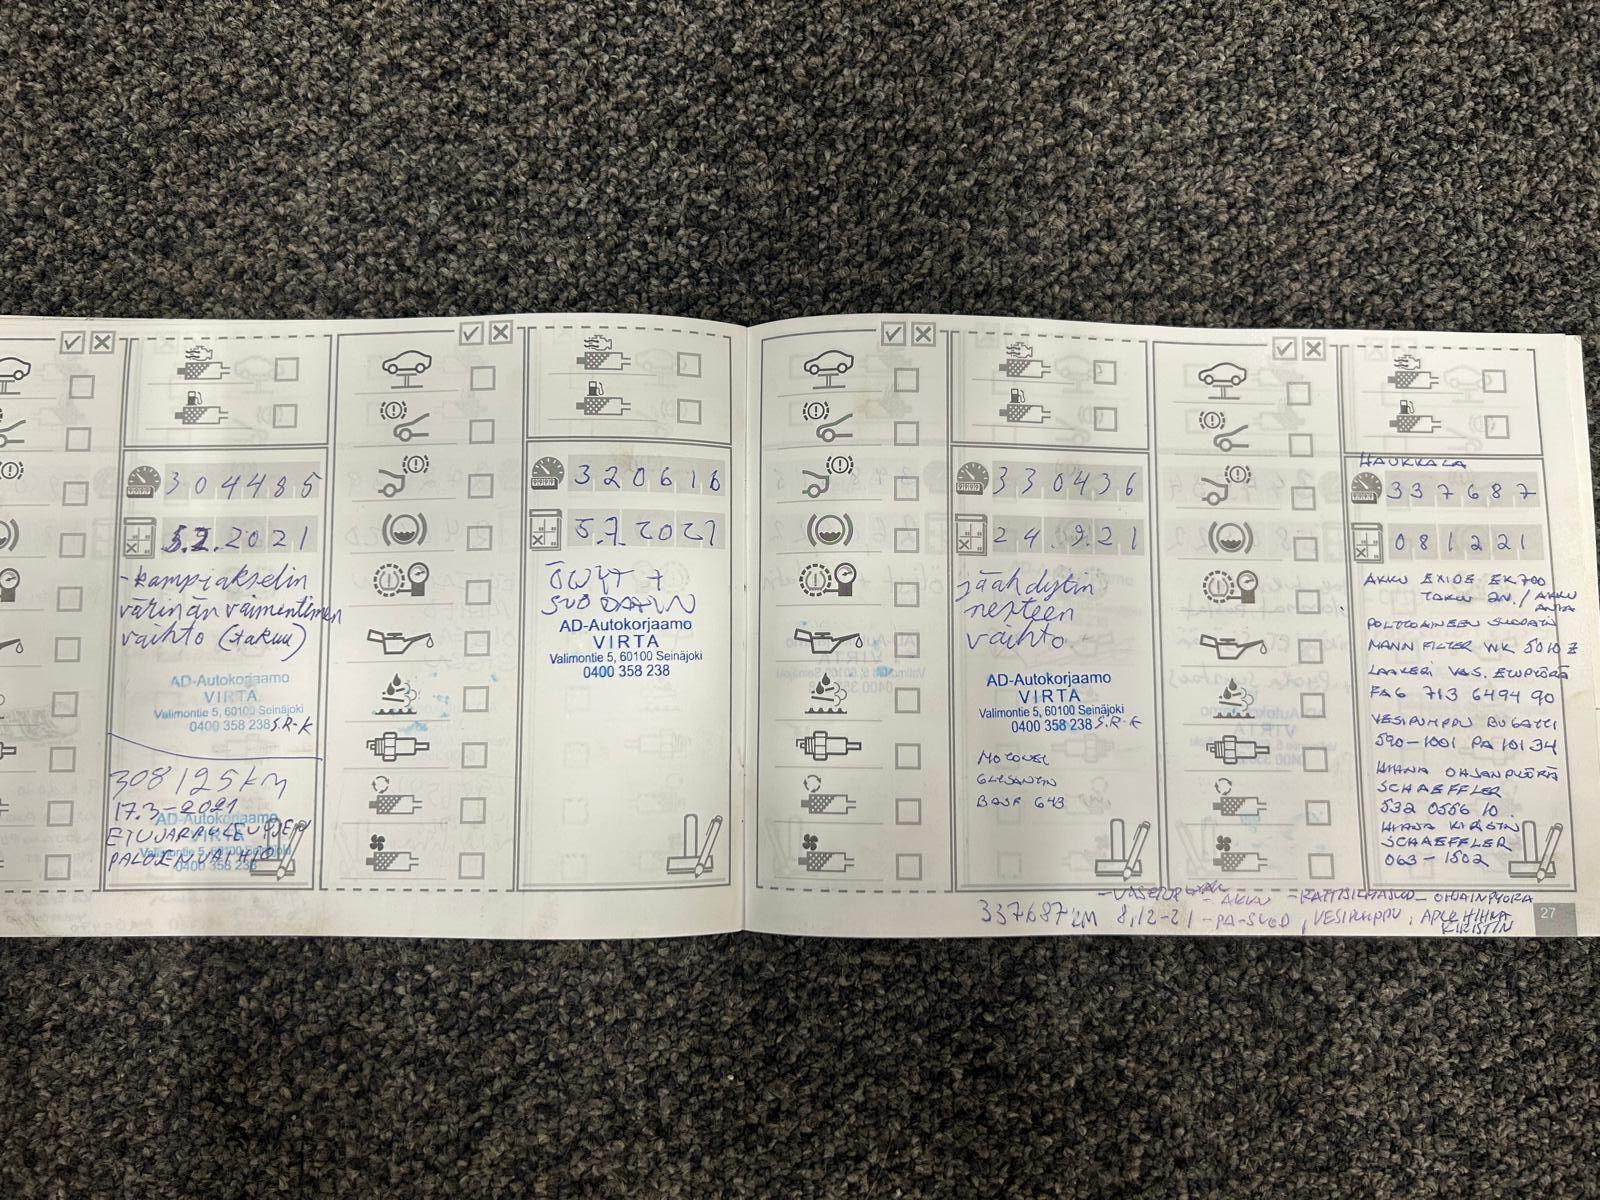 304485
5.2.2021
-kampiakselin
värinän vaimentimen
vaihto (takuu)
AD-Autokorjaamo
VIRTA
Valimontie 5, 60100 Seinäjoki
0400 358 238 S.R-K
308125km
17.3-2021
ETUJARRULEVYJEN
PALOJEN VAIHTO
AD-Autokorjaamo
0400 358 238
320616
5.7.2021
ÖLJYT +
SUODATIN
AD-Autokorjaamo
VIRTA
Valimontie 5, 60100 Seinäjoki
0400 358 238
330436
24.9.21
jäähdytin
nesteen
vaihto
AD-Autokorjaamo
VIRTA
Valimontie 5, 60100 Seinäjoki
0400 358 238 S.R-K
GLYSANTIN
BASF G43
HAUKKALA
337687
081221
AKKU EXIDE EK700
TAKUU 2V. / AKKU
POLTTOAINEEN SUODATIN
MANN FILTER WK 5010 Z
LAAKERI VAS. ETUPYÖRÄ
FAG 713 6494 90
VESIPUMPPU BUGATTI
590-1001 PA 10134
HIHNA OHJAINPYÖRÄ
SCHAEFFLER
532 0556 10.
HIHNA KIRISTIN
SCHAEFFLER
063-1502
- AKKU - RAITISILMASUOD - OHJAINPYÖRÄ
337687 KM 8.12-21 - PA-SUOD, VESIPUMPPU, APULHIHNA
KIRISTIN
27